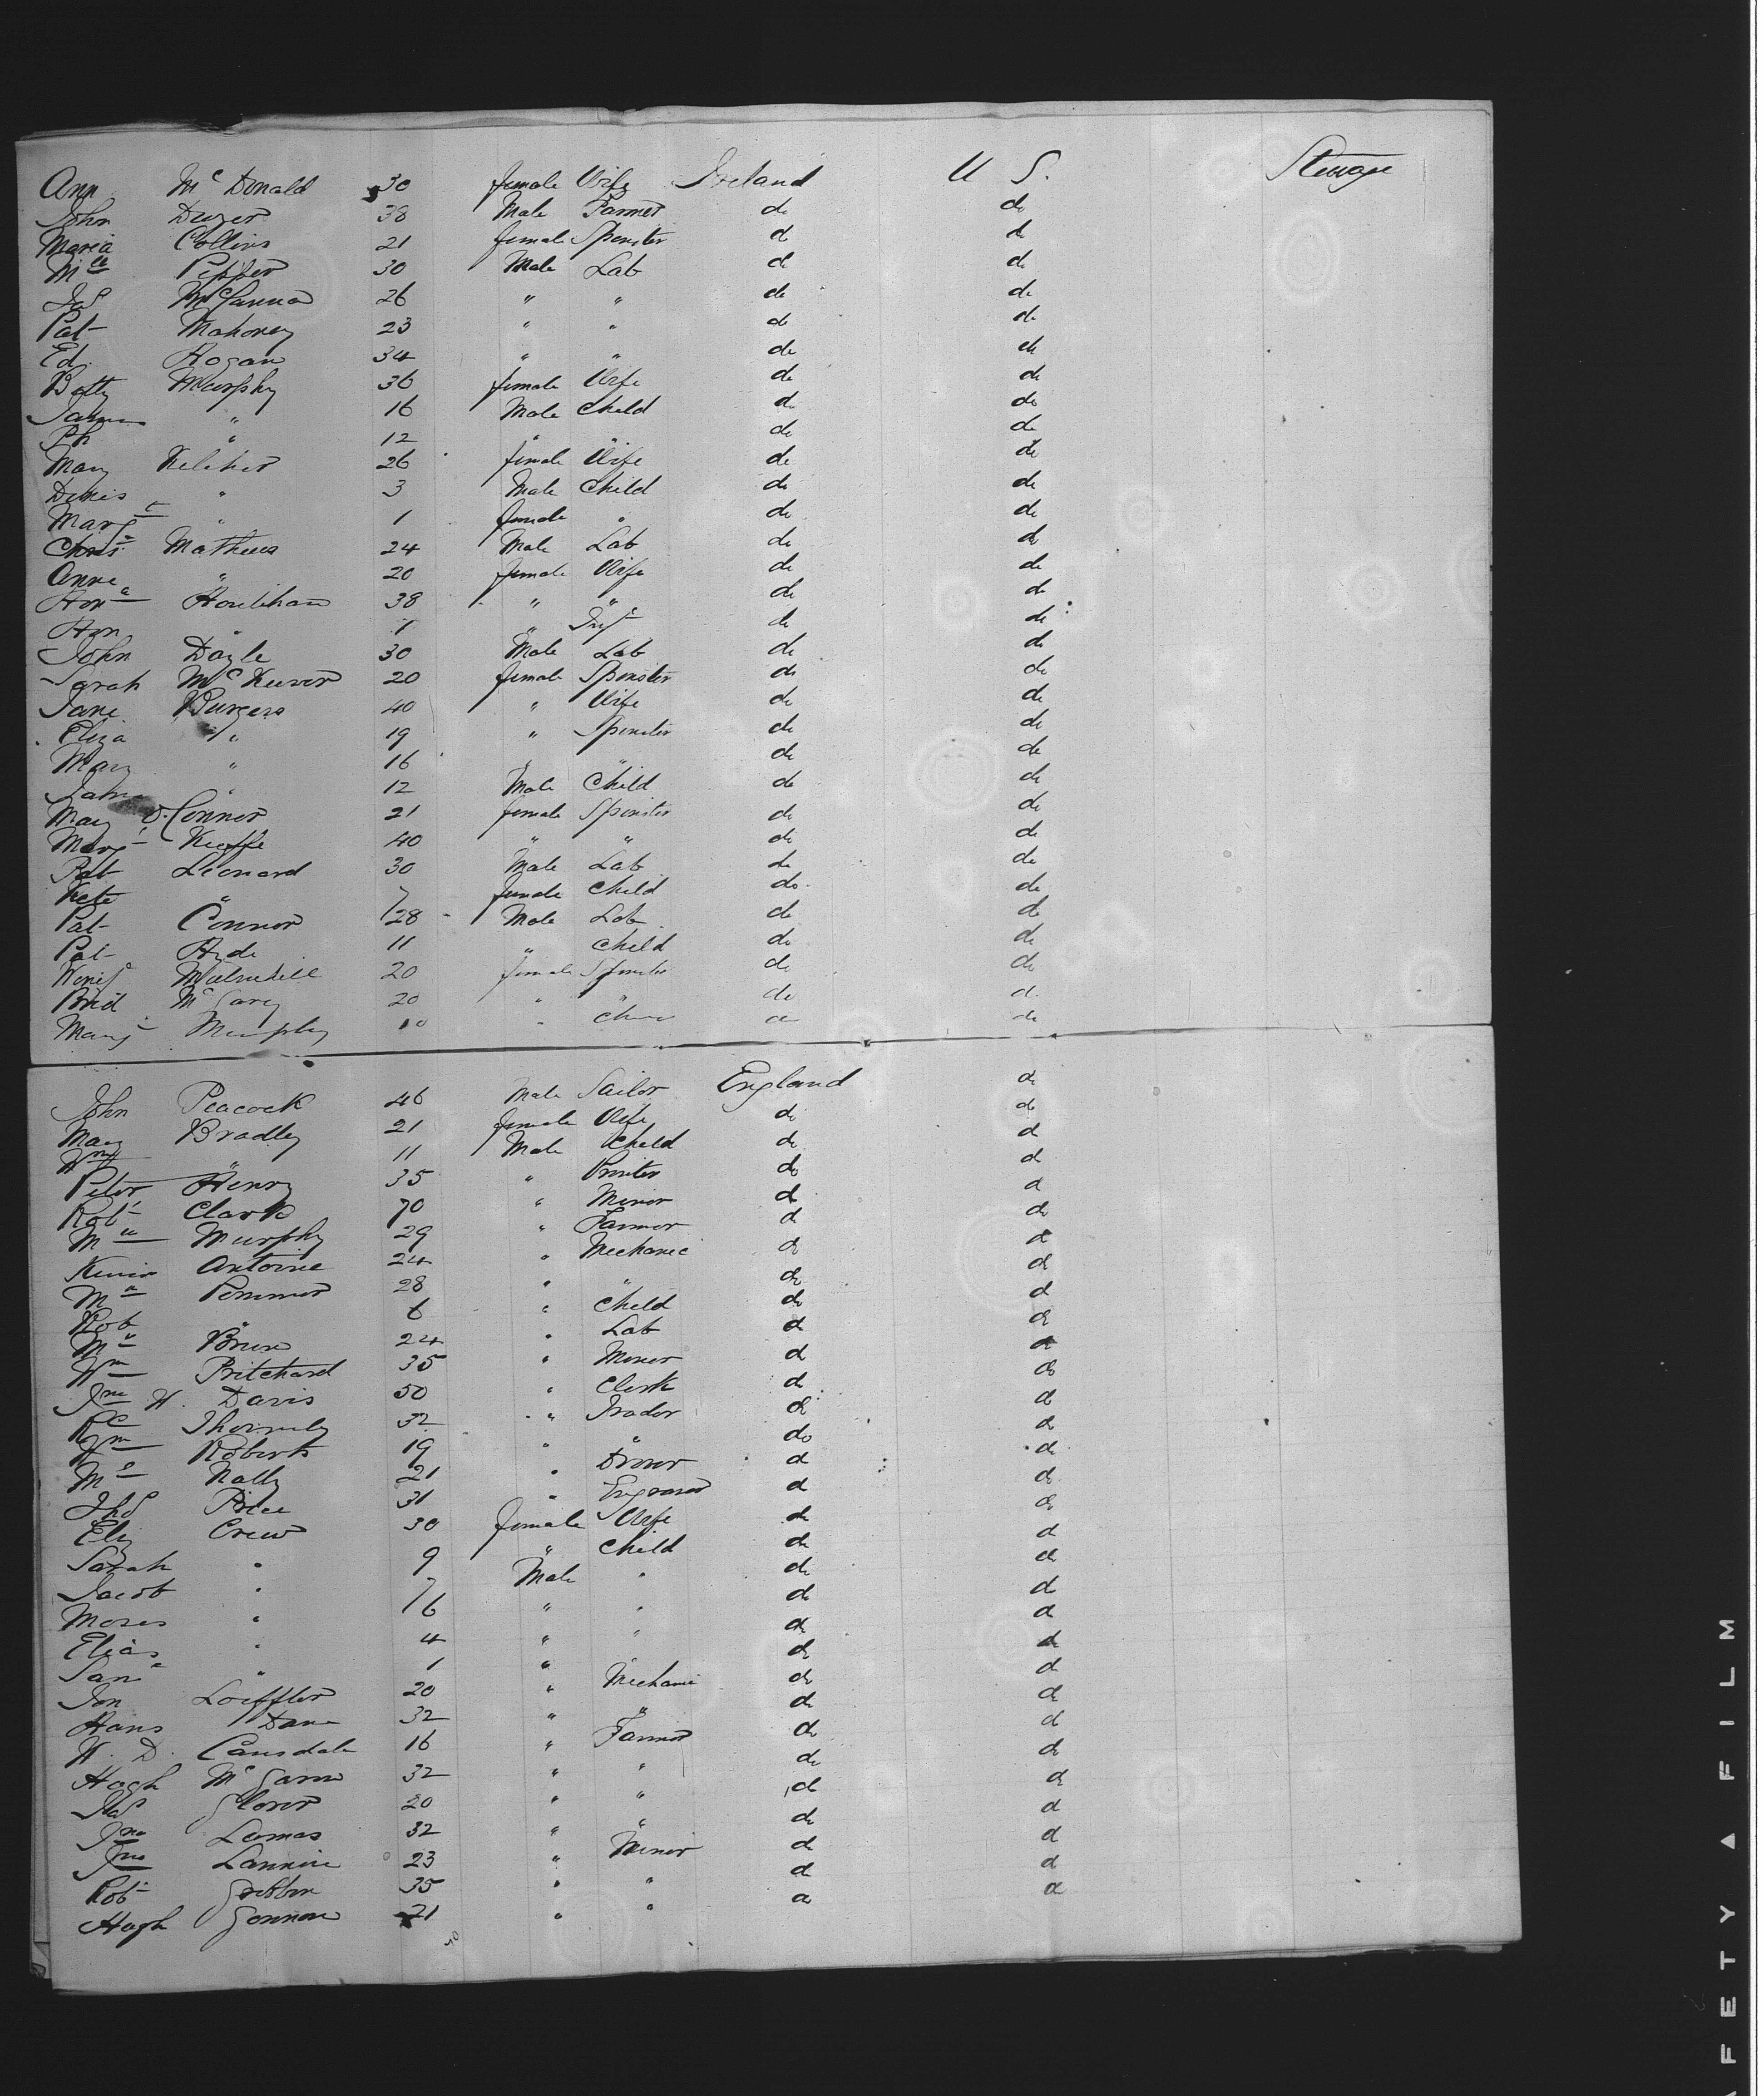 Ann McDonald 30 female Wife Ireland U S. Steerage
John Dwyer 38 Male Farmer do do
Maria Collins 21 female Spinster do do
Mcl Pepper 30 Male Lab do do
Jas McCanna 26 " " do do
Pat Mahoney 23 " " do do
Ed. Hogan 34 " " do do
Betty Murphy 36 female Wife do do
James " 16 Male Child do do
" 12 " " do do
Mary Keleher 26 female Wife do do
Denis " 3 Male Child do do
Margt " 1 female " do do
Chris Mathews 24 Male Lab do do
Anne " 20 female Wife do do
Hona Houlihan 38 " " do do
Hon " 1 " Inft do do
John Doyle 30 Male Lab do do
Sarah McKeever 20 female Spinster do do
Jane Burgess 40 " Wife do do
Eliza " 19 " Spinster do do
Mary " 16 " " do do
" 12 Male Child do do
Mary O.Connor 21 female Spinster do do
Margt Keeffe 40 " " do do
Pat Leonard 30 Male Lab do do
Kate " 7 female Child do do
Pat Connor 28 Male Lab do do
Pat Hyde 11 " Child do do
Winifd 20 female Spinster do do
Brid McGary 20 " " do do
Margt Murphy 10 " do do
John Peacock 46 Male Sailor England do
Mary Bradley 21 female Wife do do
Wm " 11 Male Child do do
Peter Henry 35 " Printer do do
Robt Clark 70 " Miner do do
Mcl Murphy 29 " Farmer do do
Antoine 24 " Mechanic do do
28 " " do do
Rob " 6 " Child do do
24 " Lab do do
Wm Pritchard 35 " Miner do do
Jno H. Davis 50 " Clerk do do
Thornely 32 " Trader do do
Wm Roberts 19 " " do do
Nally 21 " Drover do do
Thos Price 31 " Engraver do do
Eliz Crew 30 female Wife do do
Sarah " 9 " Child do do
Jacob " 7 Male " do do
Moses " 6 " " do do
Elias " 4 " " do do
Saml " 1 " " do do
Jon Loeffler 20 " Mechanic do do
Hans Dane 32 " " do do
W. D. Cansdale 16 " Farmer do do
Hugh McGann 32 " " do do
Jas Glover 20 " " do do
Jno Lomas 32 " " do do
Jno Lannin 23 " Miner do do
Robt Gribbin 35 " " do do
Hugh Gonnon 21 " " do do
AFETY ▲ FILM